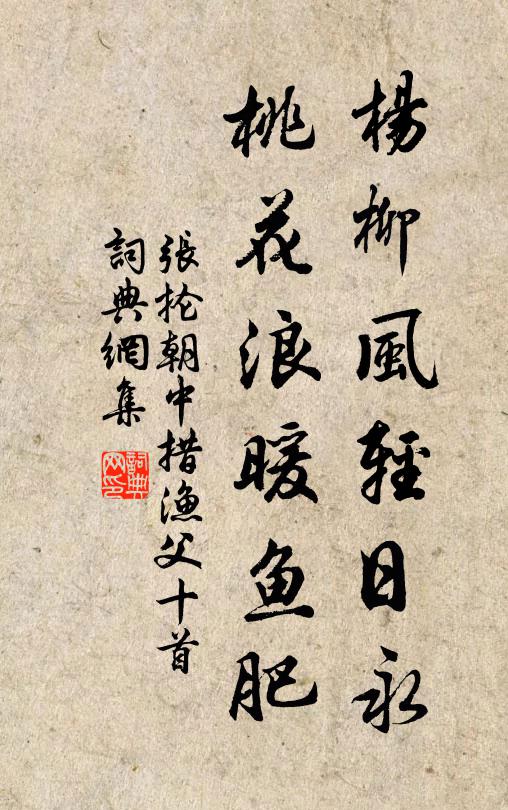 楊柳風輕日永
桃花浪暖鱼肥
張抡朝中措漁父十首
詞典網集
詞典网印